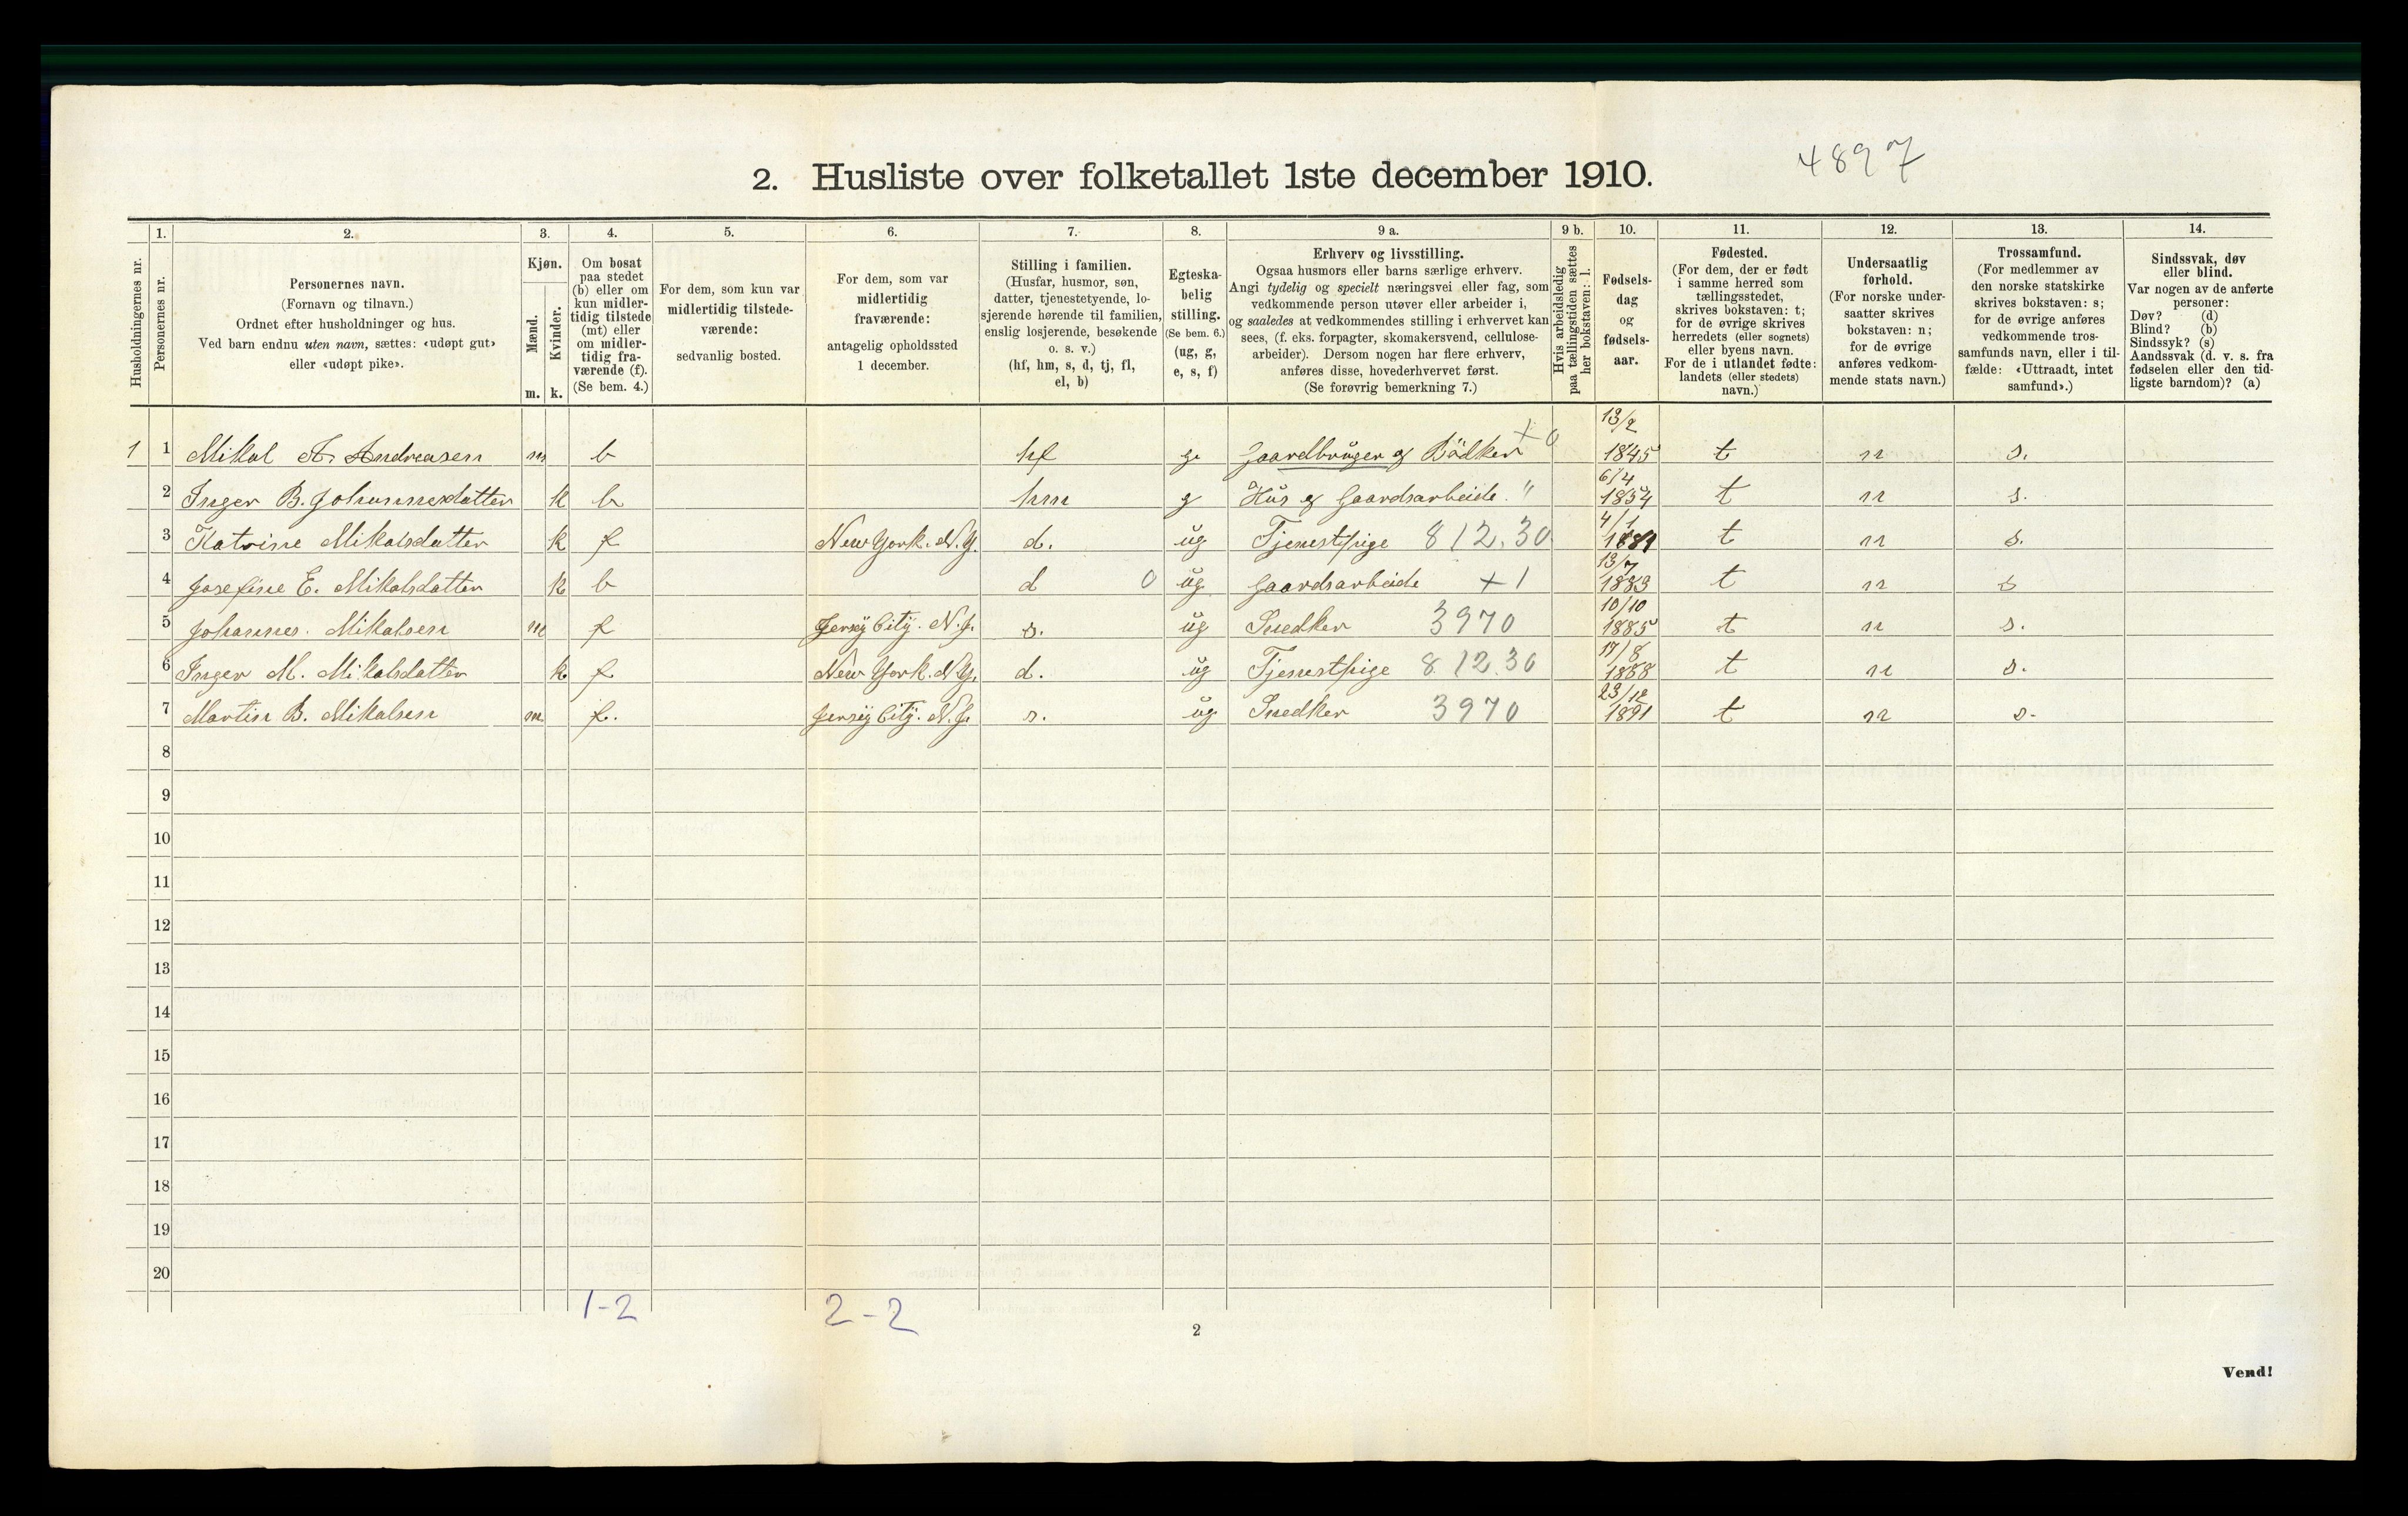 4897
2. Husliste over folketallet 1ste december 1910.
Husholdningernes nr.
1.
Personernes nr.
2.
Personernes navn.
(Fornavn og tilnavn.)
Ordnet efter husholdninger og hus.
Ved barn endnu uten navn, sættes: «udøpt gut»
eller «udøpt pike».
3.
Kjøn.
Mænd.
m.
Kvinder.
k.
4.
Om bosat
paa stedet
(b) eller om
kun midler-
tidig tilstede
(mt) eller
om midler-
tidig fra-
værende (f).
(Se bem. 4.)
5.
For dem, som kun var
midlertidig tilstede-
værende:
sedvanlig bosted.
6.
For dem, som var
midlertidig
fraværende:
antagelig opholdssted
1 december.
7.
Stilling i familien.
(Husfar, husmor, søn,
datter, tjenestetyende, lo-
sjerende hørende til familien,
enslig losjerende, besøkende
o. s. v.)
(hf, hm, s, d, tj, fl,
el, b)
8.
Egteska-
belig
stilling.
(Se bem. 6.)
(ug, g,
e, s, f)
9 a.
Erhverv og livsstilling.
Ogsaa husmors eller barns særlige erhverv.
Angi tydelig og specielt næringsvei eller fag, som
vedkommende person utøver eller arbeider i,
og saaledes at vedkommendes stilling i erhvervet kan
sees, (f. eks. forpagter, skomakersvend, cellulose-
arbeider). Dersom nogen har flere erhverv,
anføres disse, hovederhvervet først.
(Se forøvrig bemerkning 7.)
9 b.
Hvis arbeidsledig
paa tællingstiden sættes
her bokstaven: l.
10.
Fødsels-
dag
og
fødsels-
aar.
11.
Fødested.
(For dem, der er født
i samme herred som
tællingsstedet,
skrives bokstaven: t;
for de øvrige skrives
herredets (eller sognets)
eller byens navn.
For de i utlandet fødte:
landets (eller stedets)
navn.)
12.
Undersaatlig
forhold.
(For norske under-
saatter skrives
bokstaven: n;
for de øvrige
anføres vedkom-
mende stats navn.)
13.
Trossamfund.
(For medlemmer av
den norske statskirke
skrives bokstaven: s;
for de øvrige anføres
vedkommende tros-
samfunds navn, eller i til-
fælde: «Uttraadt, intet
samfund».)
14.
Sindssvak, døv
eller blind.
Var nogen av de anførte
personer:
Døv? (d)
Blind? (b)
Sindssyk? (s)
Aandssvak (d. v. s. fra
fødselen eller den tid-
ligste barndom)? (a)
1 1 Mikal A. Andreasen m b hf g. Gaardbruger og Bödker +0 13/2 1845 t n s.
2 Inger B. Johannesdatter k b hm g Hus og Gaardsarbeide. " 6/4 1854 t n s.
3 Katrine Mikalsdatter k f New York. N.Y. d. ug Tjenestpige 812.30 4/1 1881 t n s.
4 Josefine E. Mikalsdatter k b d 0 ug Gaardsarbeide +1 13/7 1883 t n s
5 Johannes. Mikalsen m f Jersey City. N.J. s. ug Snedker 3970 10/10 1885 t n s.
6 Inger M. Mikalsdatter k f New York. N.Y. d. ug Tjenestpige 812.30 17/8 1888 t n s.
7 Martin B. Mikalsen m f. Jersey City. N.J. s. ug Snedker 3970 23/12 1891 t n s.
8
9
10
11
12
13
14
15
16
17
18
19
20
1-2 2-2
2
Vend!